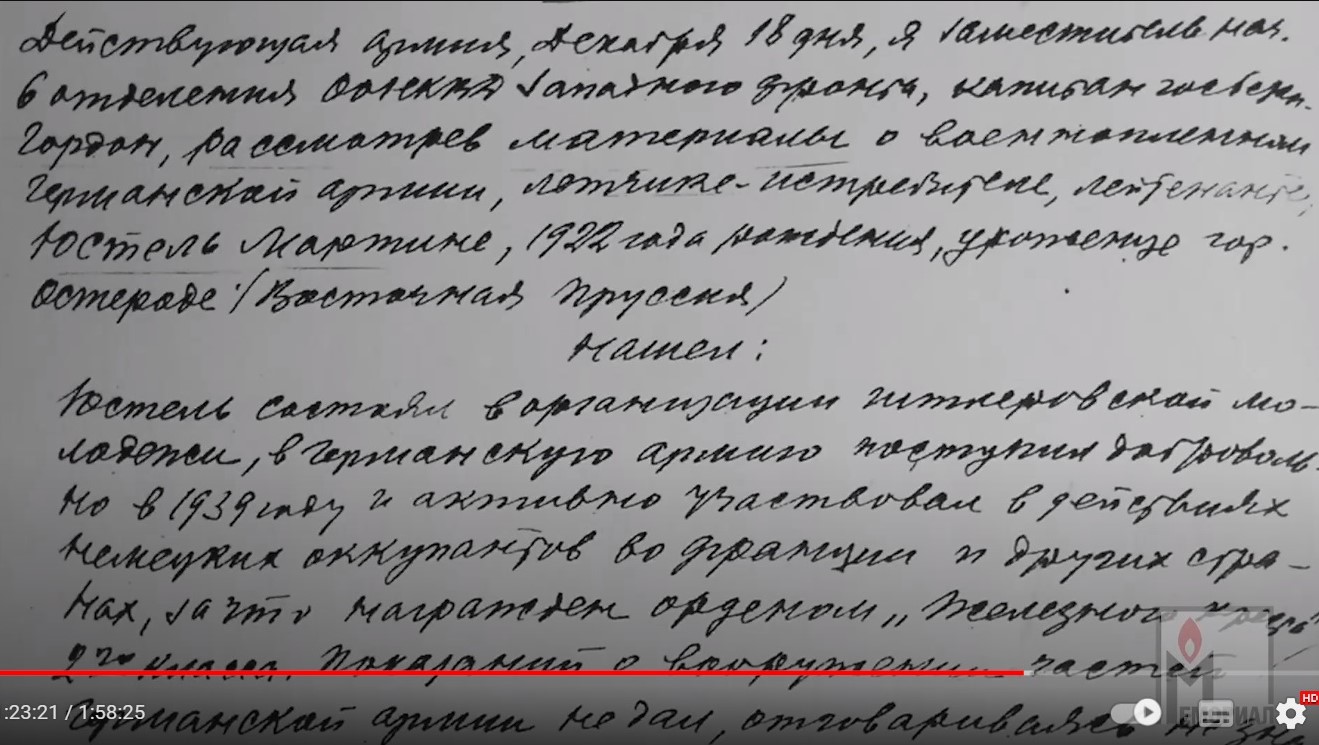 Действующая армия, Декабря 18 дня, я заместитель нач.
6 отделения ОО НКВД Западного фронта, капитан госбезп.
Гордон, рассмотрев материалы о военнопленном
Германской армии, летчике-истребителе, лейтенанте,
Юстель Мартине, 1922 года рождения, уроженце гор.
Остероде (Восточная Пруссия)
Нашел:
Юстель состоял в организации гитлеровской мо-
лодежи, в Германскую армию поступил доброволь-
но в 1939 году и активно участвовал в действиях
немецких оккупантов во Франции и других стра-
нах, за что награжден орденом „Железного креста"
2го класса. Показаний о вооружении частей
Германской армии не дал, отговариваясь
:23:21 / 1:58:25
HD
МЕМОРИАЛ